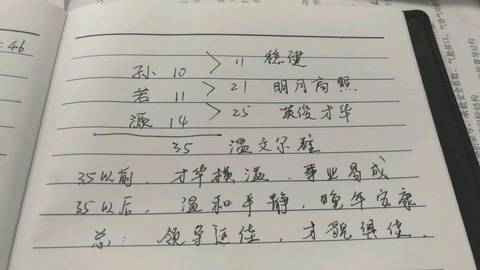 :46
孙 10 > 11 稳健
若 11 > 21 明月高照
源 14 > 25 英俊才华
35 温文尔雅
35以前，才华横溢，事业易成
35以后，温和平静，晚年安康
总：领导运佳，才貌俱佳.